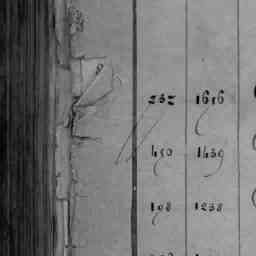 232 1616
450 1459
198 1238